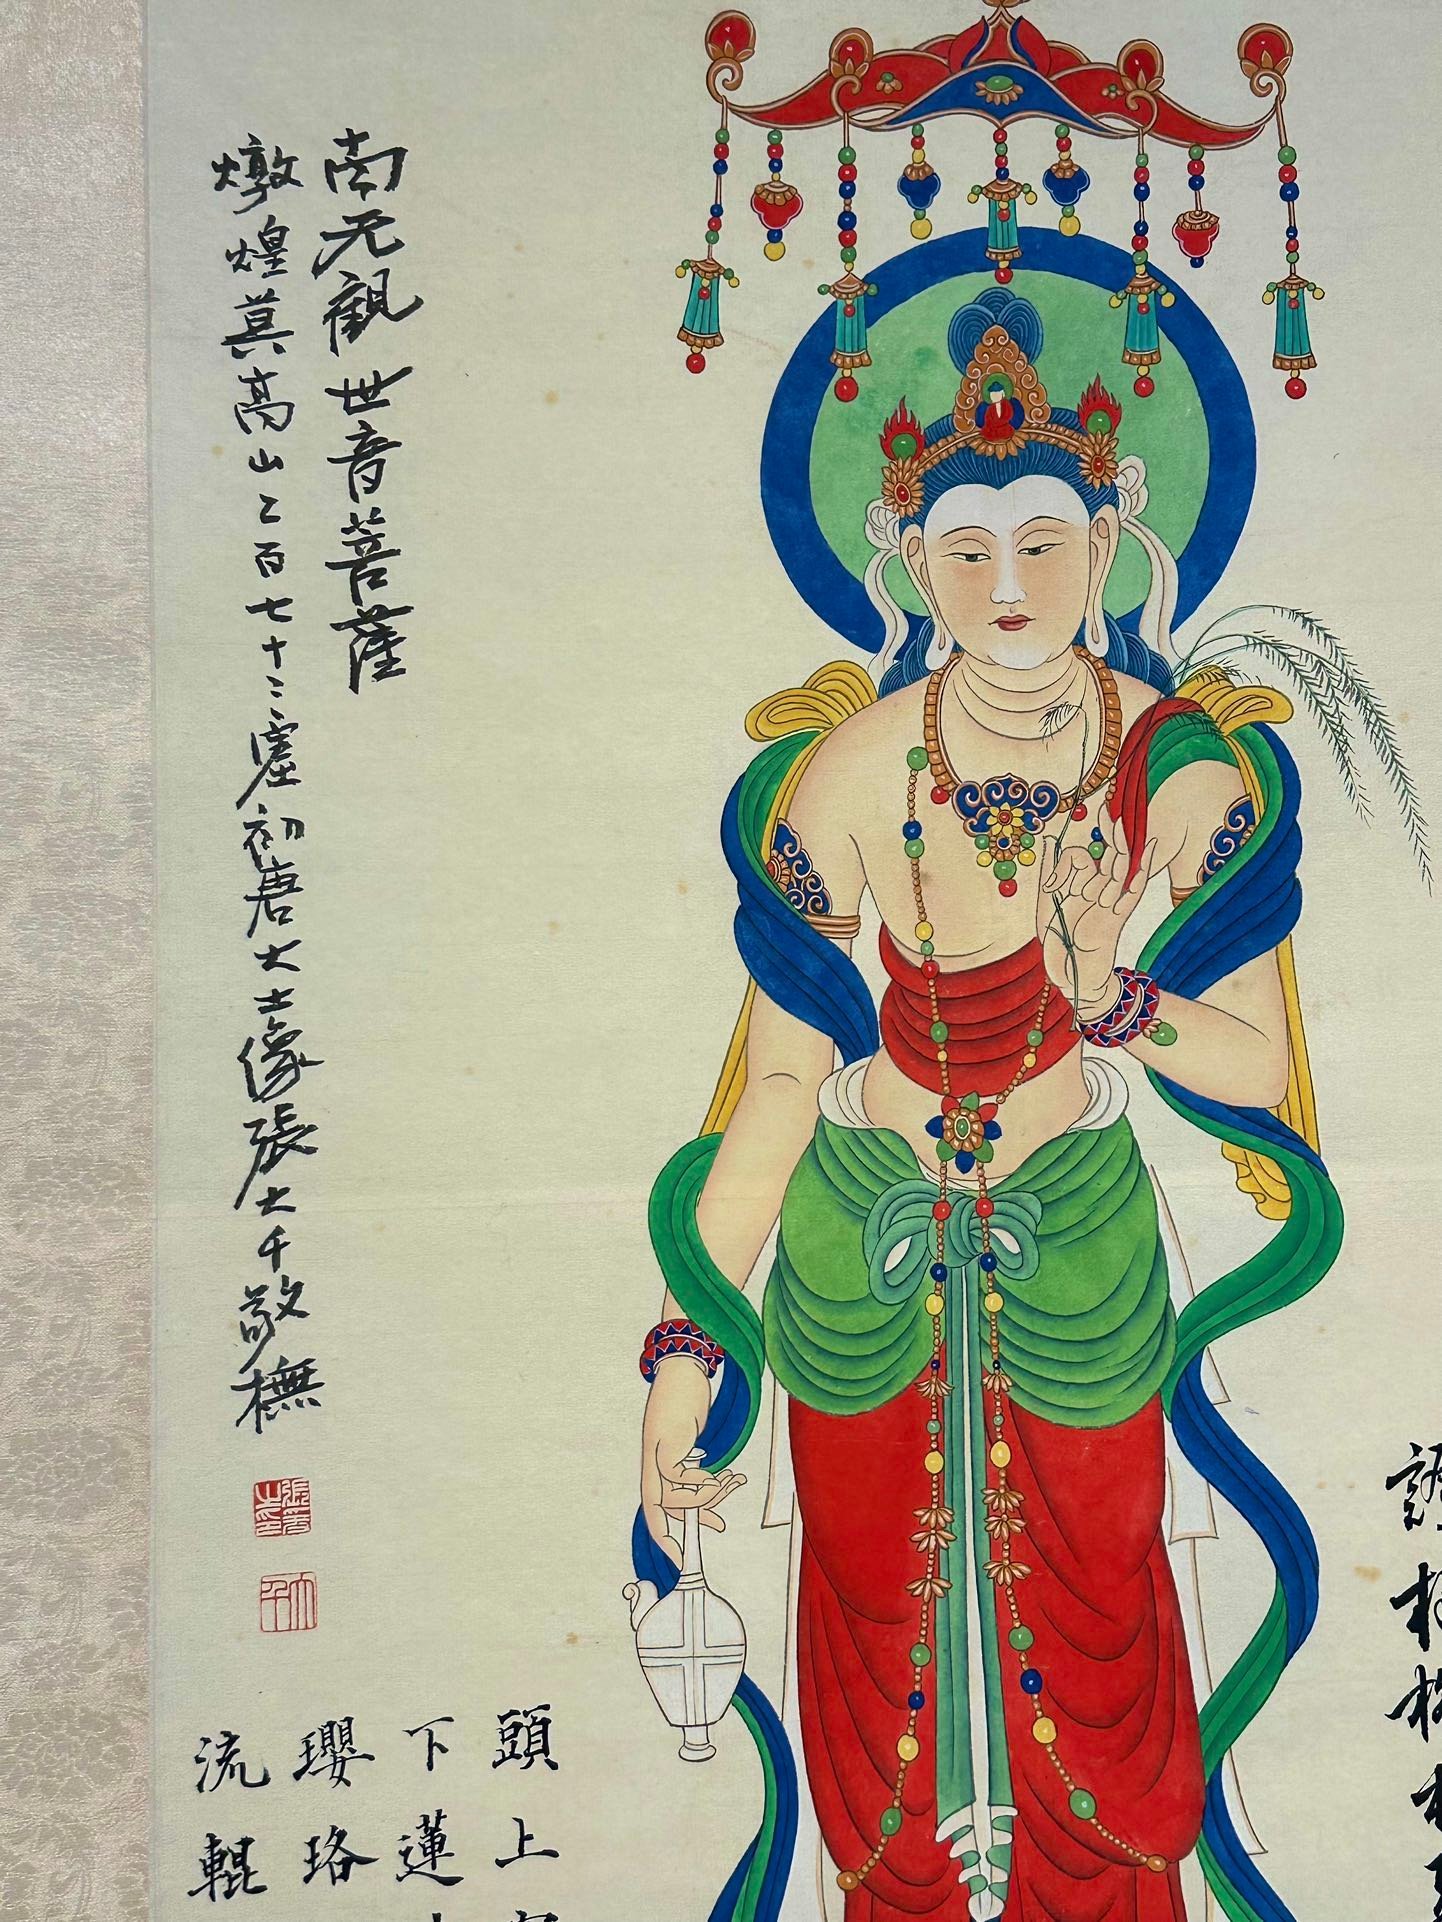 南无觀世音菩薩
燉煌莫高山二百七十二窟初唐大士像張大千敬橅
張爰之印
大千
頭上
下蓮
瓔珞
流輥